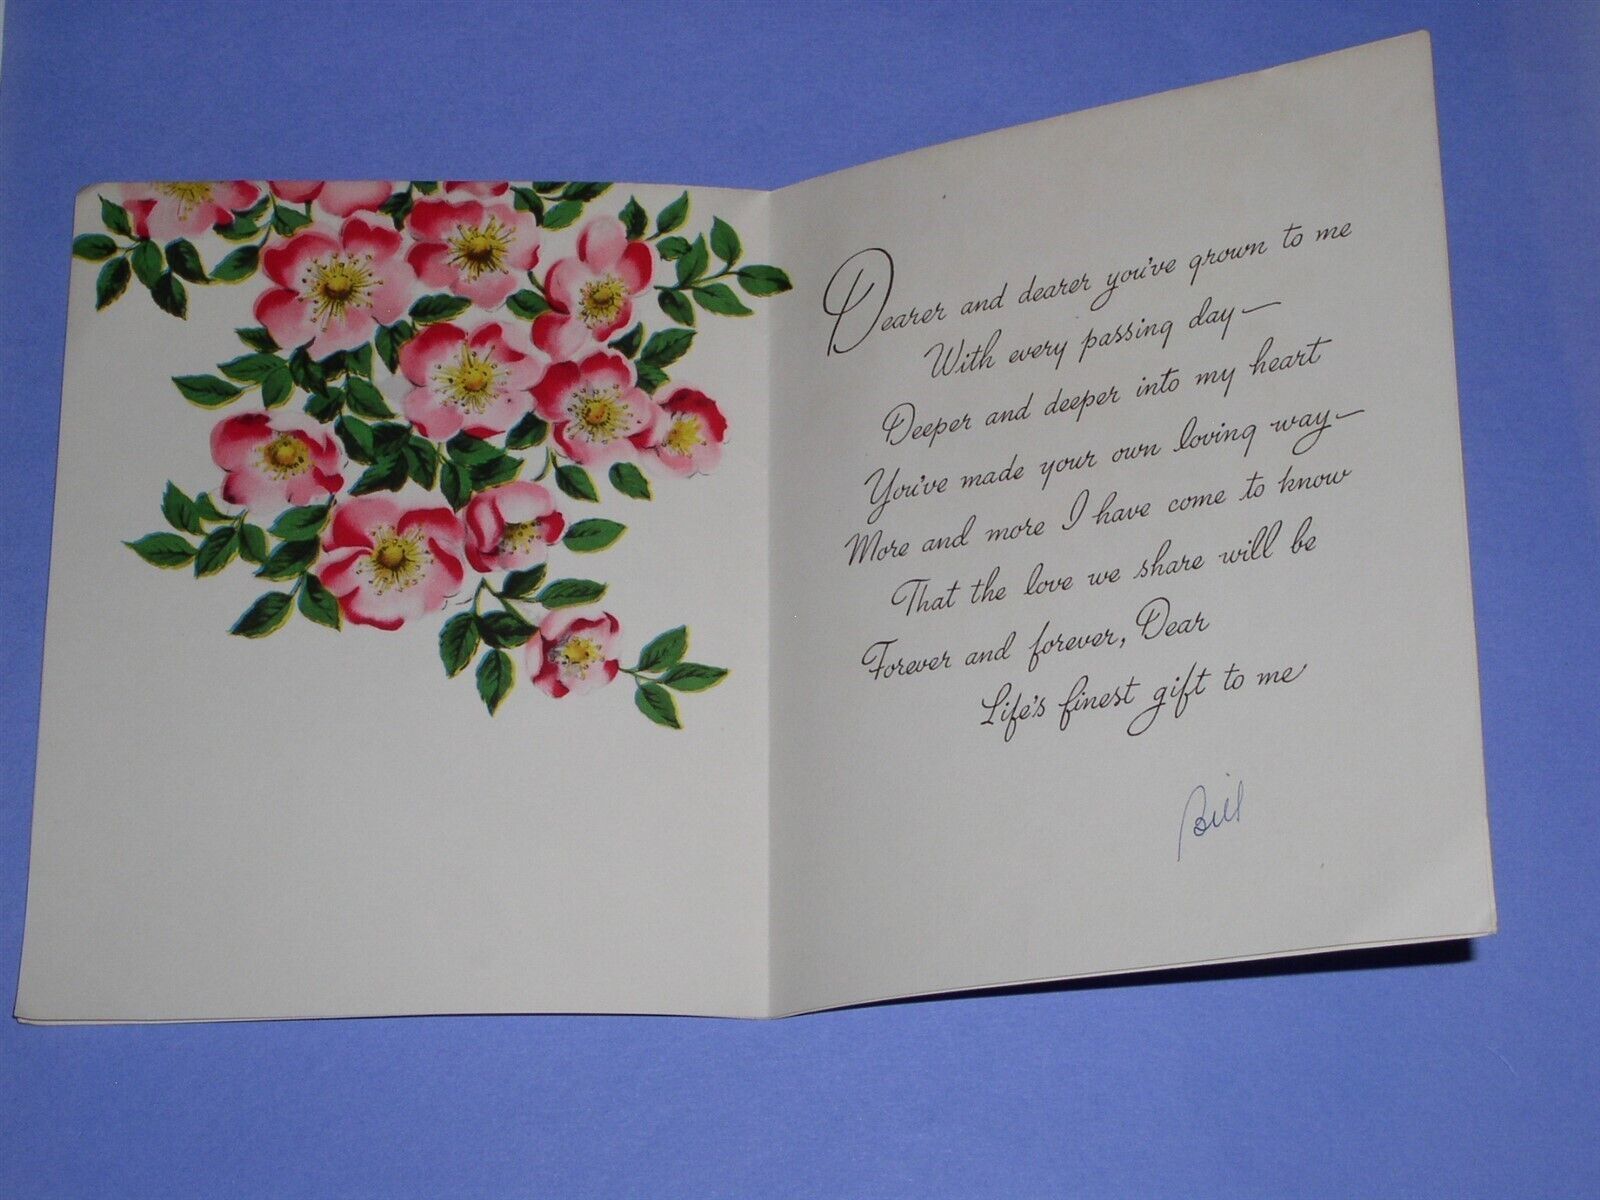 Dearer and dearer you've grown to me
With every passing day—
Deeper and deeper into my heart
You've made your own loving way—
More and more I have come to know
That the love we share will be
Forever and forever, Dear
Life's finest gift to me
Bill